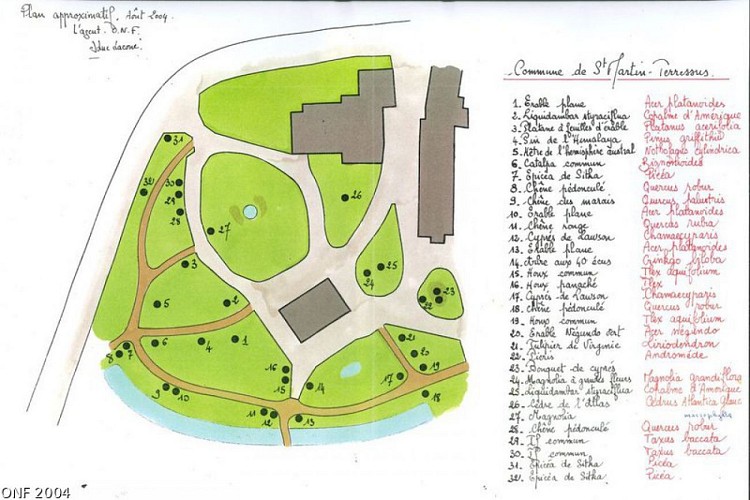 Plan approximatif. Août 2004.
L'agent O.N.F.
Commune de St Martin-Terressus.
1. Erable plane Acer platanoides
2. Liquidambar styraciflua Copalme d'Amérique
3. Platane à feuilles d'érable Platanus acerifolia
4. Pin de l'Himalaya Pinus griffithii
5. Hêtre de l'hémisphère austral Nothofagus cylindrica
6. Catalpa commun Bignonioides
7. Epicéa de Sitka Picéa
8. Chêne pédonculé Quercus robur
9. Chêne des marais Quercus palustris
10. Erable plane Acer platanoides
11. Chêne rouge Quercus rubra
12. Cyprès de Lawson Chamaecyparis
13. Erable plane Acer platanoides
14. Arbre aux 40 écus Ginkgo biloba
15. Houx commun Ilex aquifolium
16. Houx panaché Ilex
17. Cyprès de Lawson Chamaecyparis
18. Chêne pédonculé Quercus robur
19. Houx commun Ilex aquifolium
20. Erable Négundo vert Acer négundo
21. Tulipier de Virginie Liriodendron
22. Pieris Andromède
23. Bouquet de cyprès
24. Magnolia à grandes fleurs Magnolia grandiflora
25. Liquidambar styraciflua Copalme d'Amérique
26. Cèdre de l'Atlas Cédrus Atlantica Glauc
27. Magnolia
28. Chêne pédonculé Quercus robur
29. If commun Taxus baccata
30. If commun Taxus baccata
31. Epicéa de Sitka Picéa
32. Epicéa de Sitka Picéa
31
32
30
29
28
27
26
25
24
23
22
3
5
2
1
4
6
7
8
9
10
16
15
14
11
12
13
17
18
19
20
21
ONF 2004